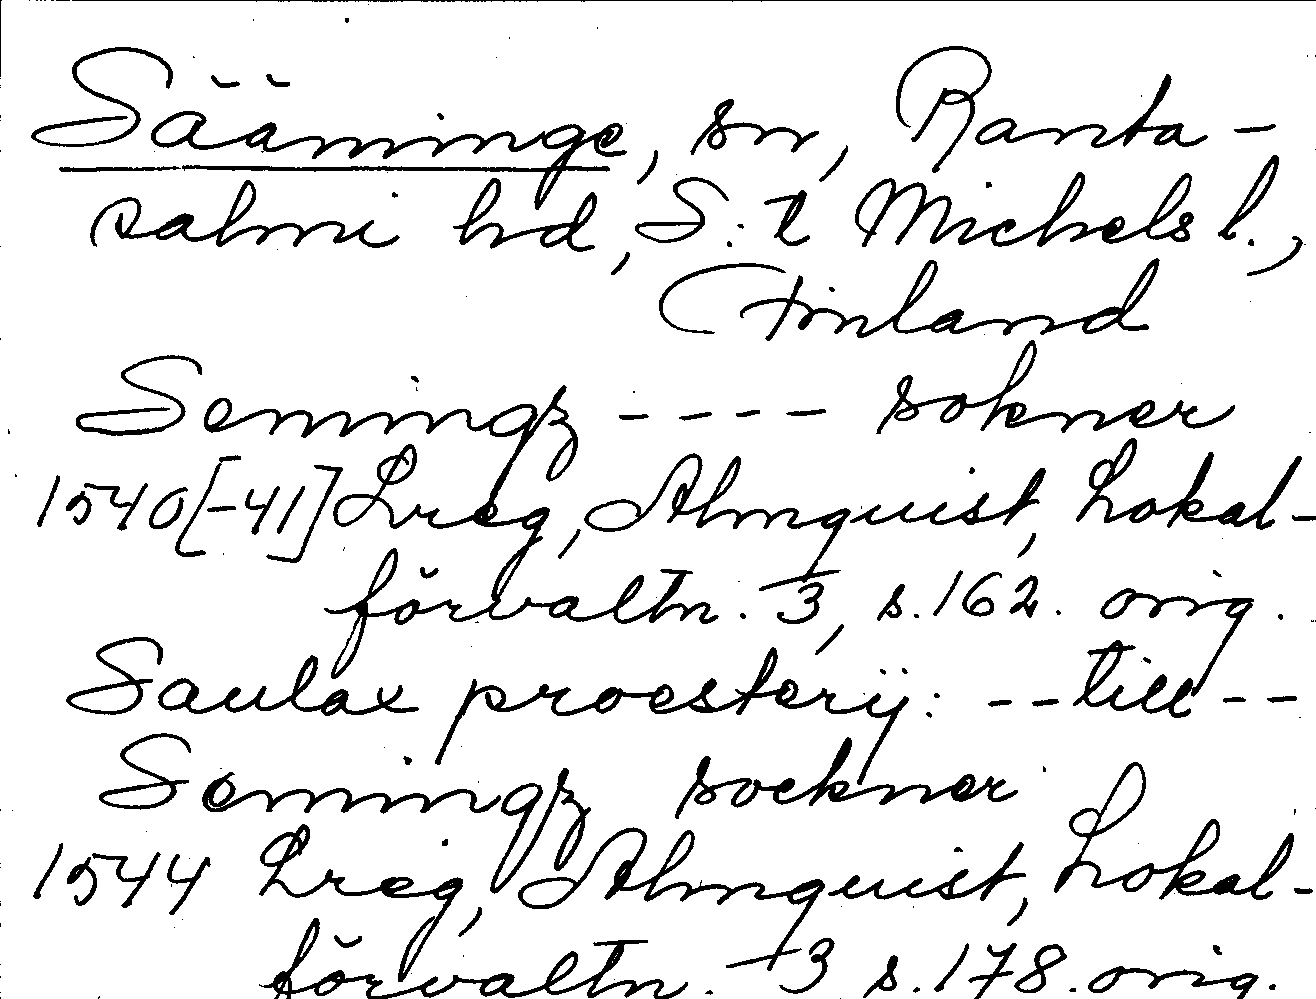 Sääminge, sn, Ranta-
salmi hd, S:t Michels l.,
Finland
Semingz ---- sokner
1540[-41] Lreg, Almquist, Lokal-
förvaltn. 3, s. 162. orig.
Saulax proesterij: -- till --
Semingz sockner
1544 Lreg, Almquist, Lokal-
förvaltn. 3 s. 178. orig.